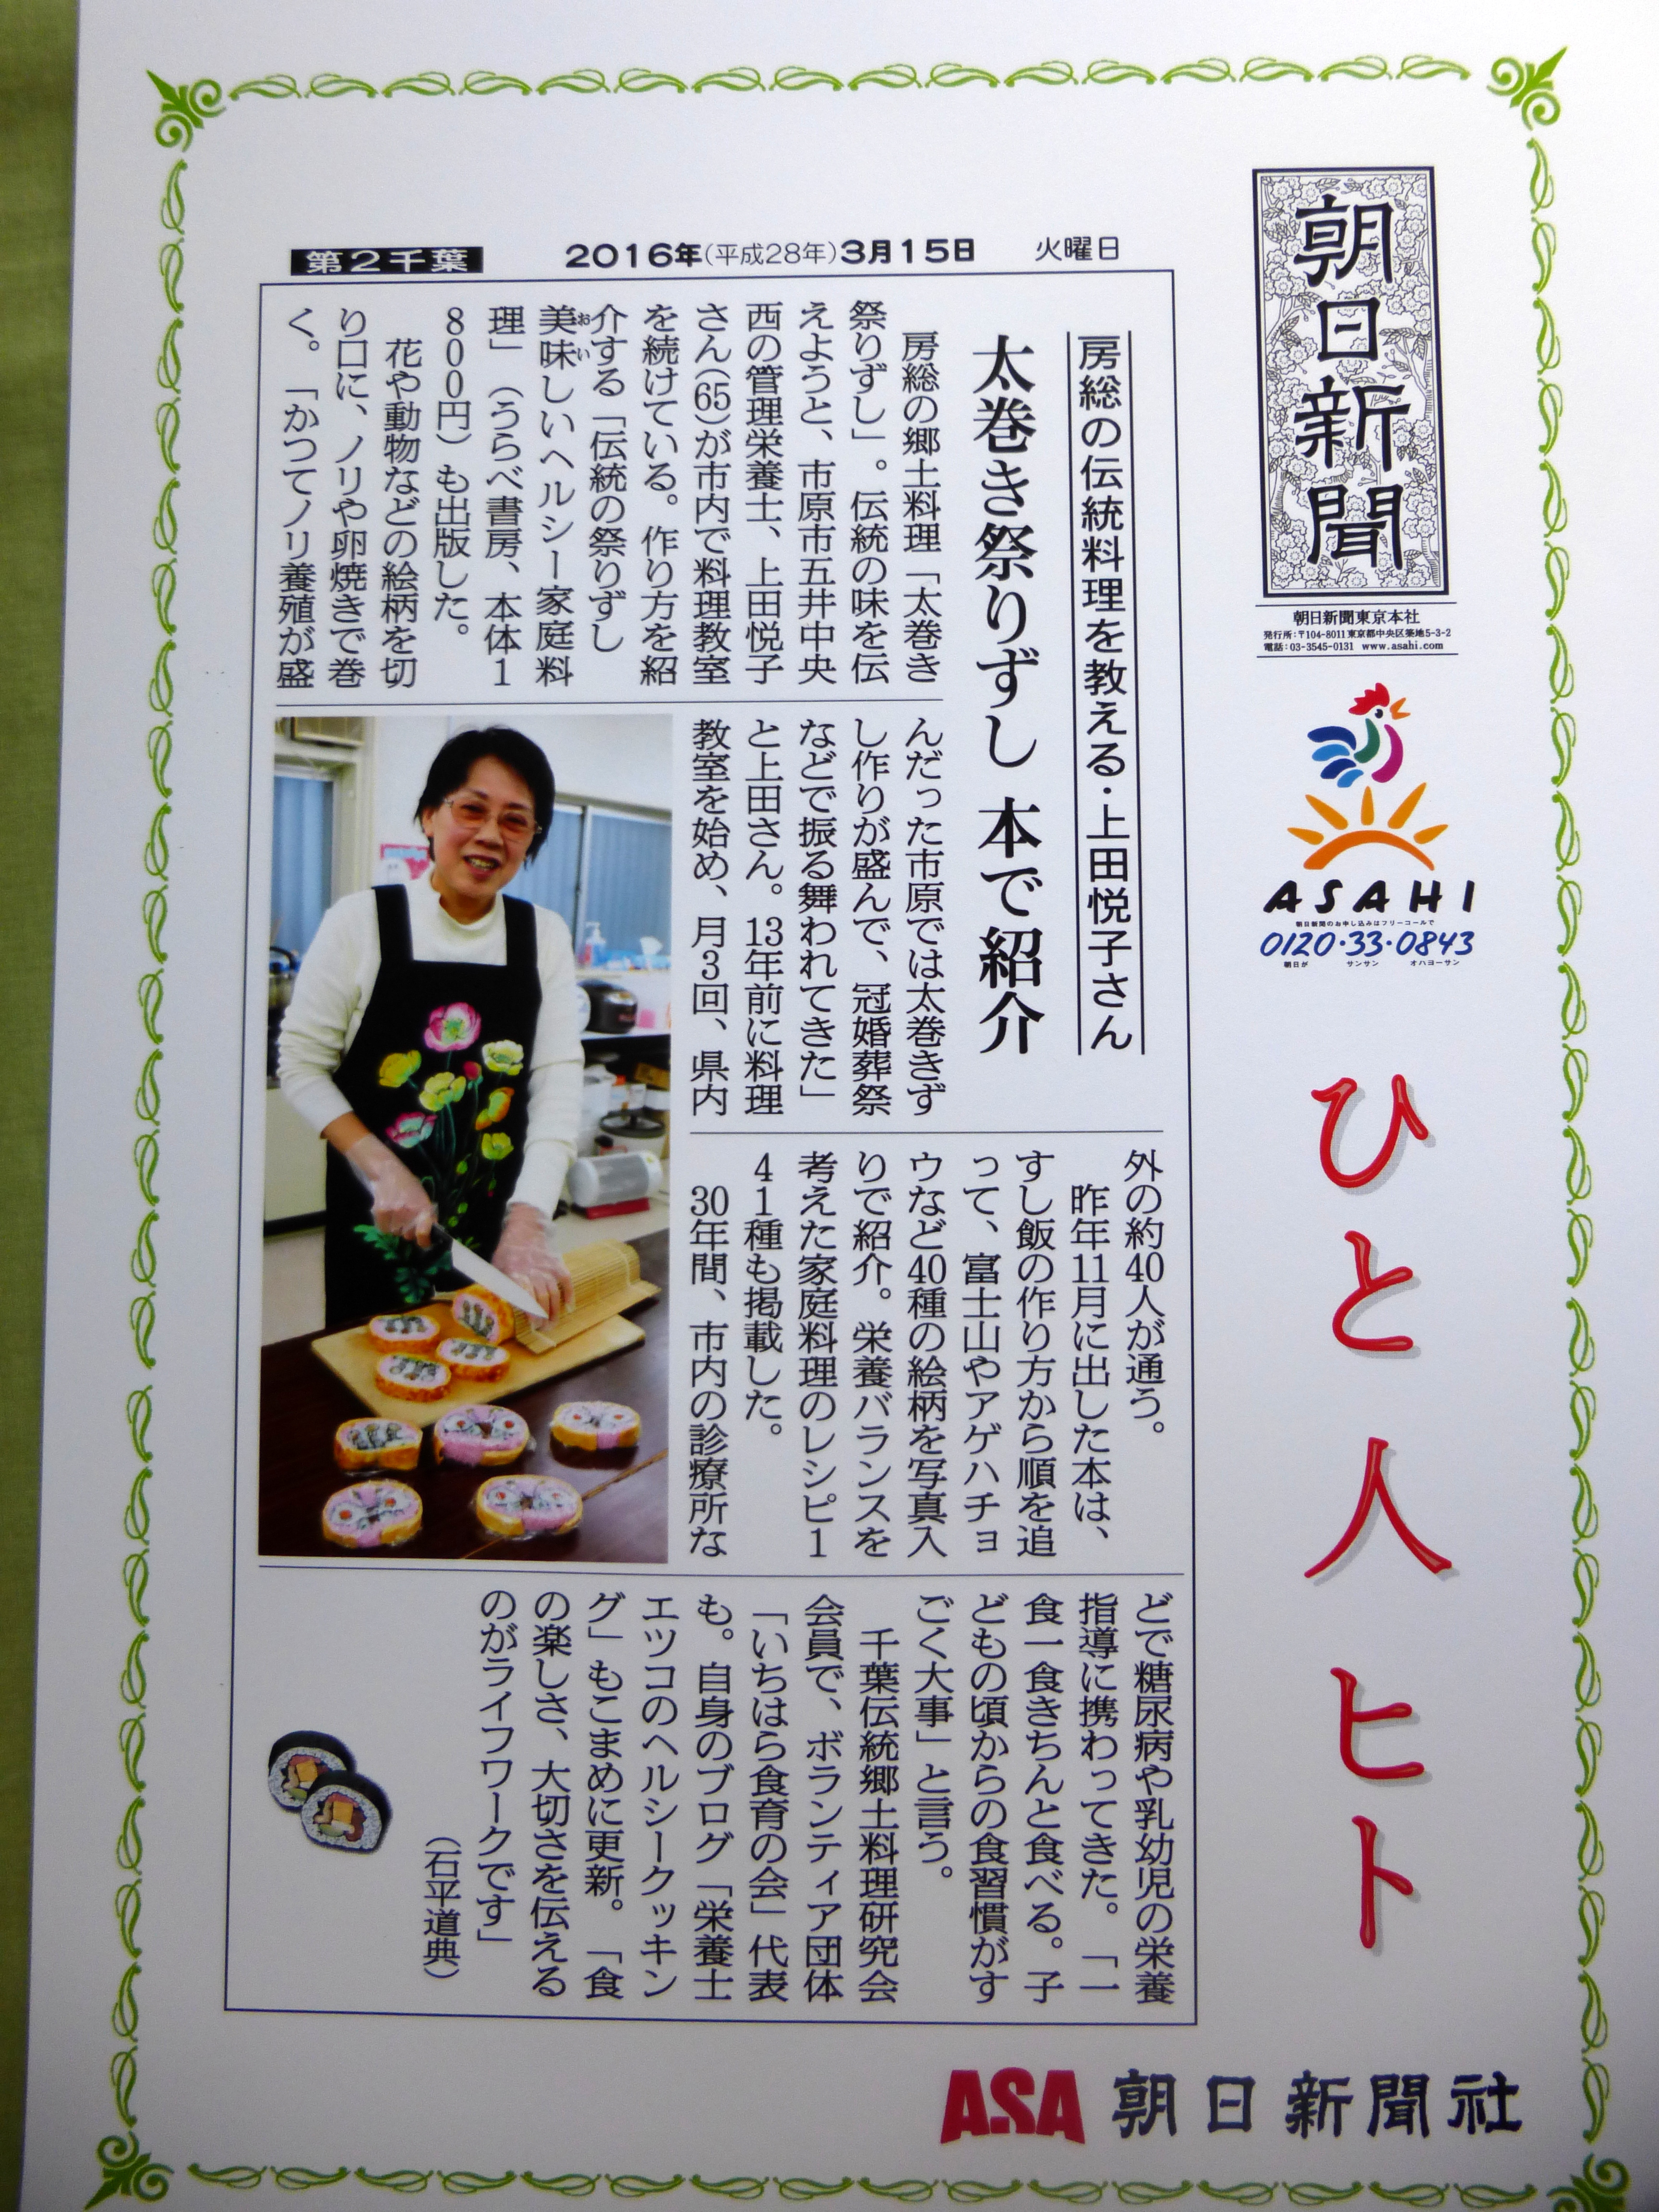 朝日新聞
朝日新聞東京本社
発行所：〒104-8011 東京都中央区築地5-3-2
電話：03-3545-0131 www.asahi.com
ASAHI
朝日新聞のお申し込みはフリーコールで
0120・33・0843
朝日が サンサン オハヨーサン
ひと人ヒト
第2千葉 2016年(平成28年)3月15日 火曜日
房総の伝統料理を教える・上田悦子さん
太巻き祭りずし 本で紹介
房総の郷土料理「太巻き
祭りずし」。伝統の味を伝
えようと、市原市五井中央
西の管理栄養士、上田悦子
さん(65)が市内で料理教室
を続けている。作り方を紹
介する「伝統の祭りずし
美味(おい)しいヘルシー家庭料
理」(うらべ書房、本体1
800円)も出版した。
花や動物などの絵柄を切
り口に、ノリや卵焼きで巻
く。「かつてノリ養殖が盛
んだった市原では太巻きず
し作りが盛んで、冠婚葬祭
などで振る舞われてきた」
と上田さん。13年前に料理
教室を始め、月3回、県内
外の約40人が通う。
昨年11月に出した本は、
すし飯の作り方から順を追
って、富士山やアゲハチョ
ウなど40種の絵柄を写真入
りで紹介。栄養バランスを
考えた家庭料理のレシピ1
41種も掲載した。
30年間、市内の診療所な
どで糖尿病や乳幼児の栄養
指導に携わってきた。「一
食一食きちんと食べる。子
どもの頃からの食習慣がす
ごく大事」と言う。
千葉伝統郷土料理研究会
会員で、ボランティア団体
「いちはら食育の会」代表
も。自身のブログ「栄養士
エツコのヘルシークッキン
グ」もこまめに更新。「食
の楽しさ、大切さを伝える
のがライフワークです」
(石平道典)
ASA 朝日新聞社